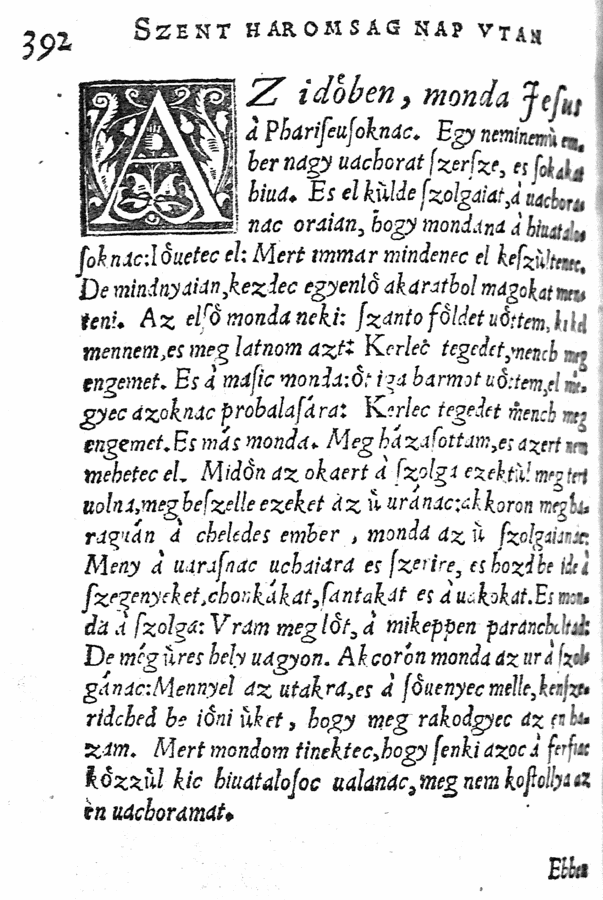 392 SZENT HAROMSAG NAP VTAN
AZ idoͤben, monda Jeſus
à Phariſeuſoknac. Egy neminemuͤ em,
ber nagy uachorat ſzerſze, es ſokakat
hiua. Es el kuͤlde ſzolgaiat, à uachoras
nac oraian, hogy mondana à hiuatalos
ſoknac: Ioͤuetec el: Mert immar mindenec el keſzuͤltenec.
De mindnyaian, kezdec egyenloͤ akaratbol magokat men,
teni. Az elſoͤ monda neki: ſzanto foͤldet uoͤttem, ki kel
mennem, es meg latnom azt: Kerlec tegedet, mench meg
engemet. Es à maſic monda: oͤt iga barmot uoͤttem, el me,
gyec azoknac probalaſára: Kerlec tegedet mench meg
engemet. Es más monda. Meg házaſottam, es azert nem
mehetec el. Midoͤn az okaert à ſzolga ezektuͤl meg tert
uolna, meg beſzelle ezeket áz uͤ uránac: akkoron meg ha-
raguán à cheledes ember, monda az uͤ ſzolgaianac:
Meny à uaraſnac uchaiara es ſzerire, es hozd be ide à
ſzegenyeket, chonkákat, ſantakat es à uakokat. Es mon,
da à ſzolga: Vram meg loͤt, à mikeppen paranchcltad:
De még uͤres hely uagyon. Akcorón monda az ur à ſzol
gánac: Mennyel az utakra, es à ſoͤuenyec melle, kenſze,
ridched be ioͤni uͤket, hogy meg rakodgyec az en ha,
zam. Mert mondom tinektec, hogy ſenki azoc à ferfiac
koͤzzuͤl kic hiuataloſoc ualanac, meg nem koſtollya az
èn uachoramat.
Ebben